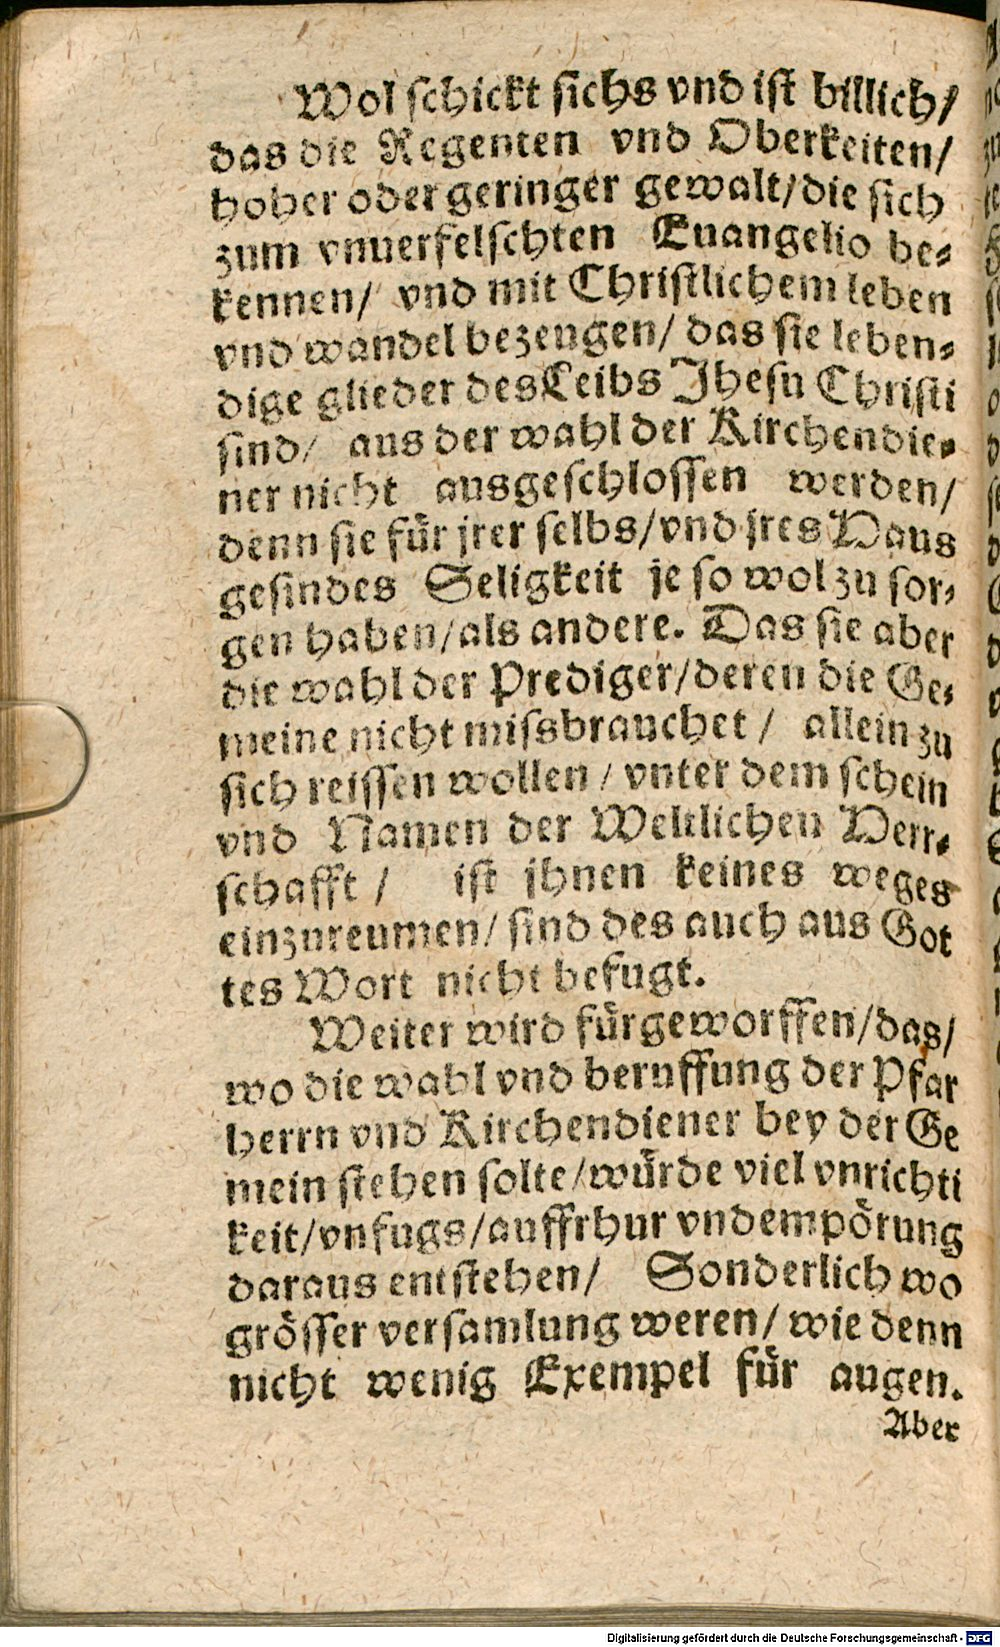 Wol schickt sichs vnd ist billich/
das die Regenten vnd Oberkeiten/
hoher oder geringer gewalt/die sich
zum vnuerfelschten Euangelio be-
kennen/ vnd mit Christlichem leben
vnd wandel bezeugen/ das sie leben-
dige glieder des Leibs Jhesu Christi
sind/ aus der wahl der Kirchendie-
ner nicht ausgeschlossen werden/
denn sie für jrer selbs/vnd jres Haus
gesindes Seligkeit je so wol zu sor-
gen haben/als andere. Das sie aber
die wahl der Prediger/deren die Ge-
meine nicht missbrauchet / allein zu
sich reissen wollen / vnter dem schein
vnd Namen der Weltlichen Herr-
schafft / ist jhnen keines weges
einzureumen/ sind des auch aus Got
tes Wort nicht befugt.
Weiter wird fürgeworffen/das/
wo die wahl vnd beruffung der Pfar
herrn vnd Kirchendiener bey der Ge
mein stehen solte/würde viel vnrichti
keit/vnfugs/auffrhur vnd empörung
daraus entstehen/ Sonderlich wo
grösser versamlung weren/ wie denn
nicht wenig Exempel für augen.
Aber
Digitalisierung gefördert durch die Deutsche Forschungsgemeinschaft - DFG